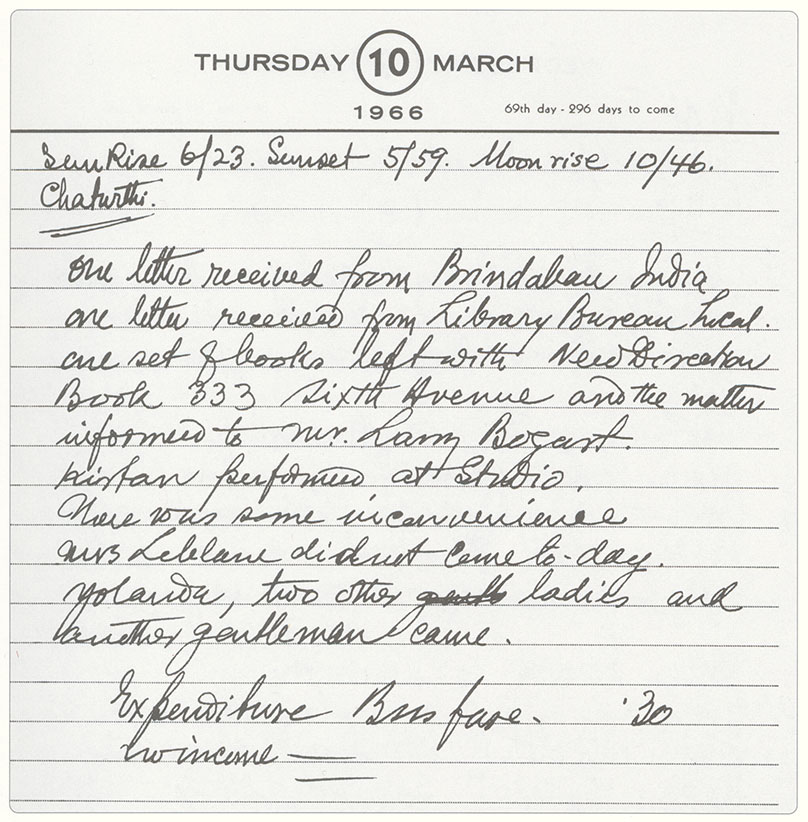 THURSDAY 10 MARCH
1966
69th day - 296 days to come
SunRise 6/23. Sunset 5/59. Moonrise 10/46.
Chaturthi.
one letter received from Brindaban India
one letter received from Library Bureau Local.
one set of books left with New Direction
Book 333 Sixth Avenue and the matter
informed to Mr. Larry Bogart.
Kirtan performed at Studio.
There was some inconvenience
Mrs Leblanc did not come to-day.
Yolanda, two other ladies and
another gentleman came.
Expenditure Bus fare. '30
no income